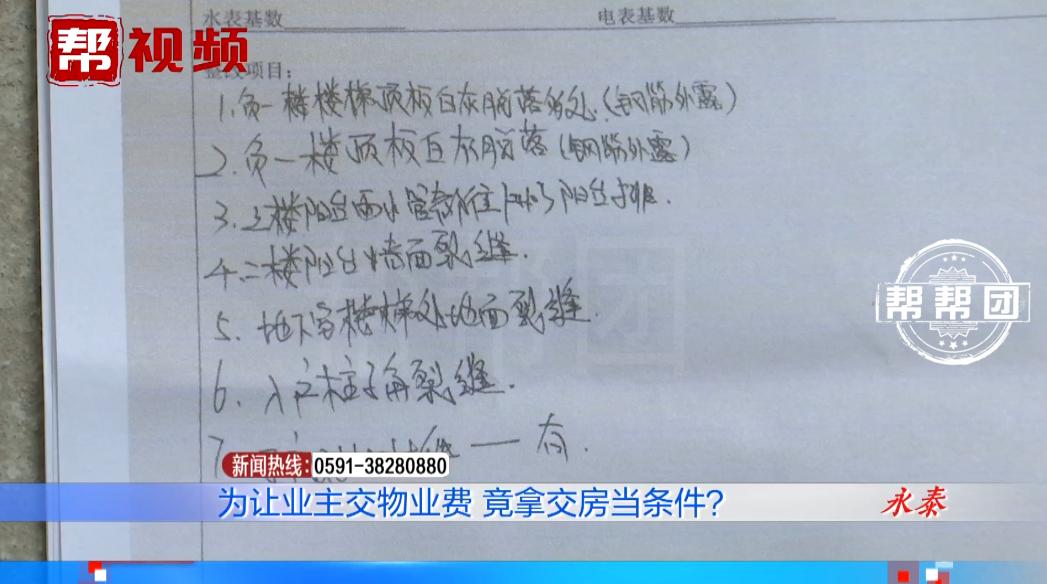 水表基数
电表基数
帮视频
整改项目：
1.负一楼楼梯顶板白灰脱落多处.(钢筋外露)
2.负一楼顶板白灰脱落(钢筋外露)
3.三楼阳台雨水管 阳台排.
4.二楼阳台墙面裂缝.
5.地下室楼梯处地面裂缝.
6.入户柱子角裂缝.
7. — 有.
帮帮团
新闻热线：0591-38280880
为让业主交物业费 竟拿交房当条件？
永泰